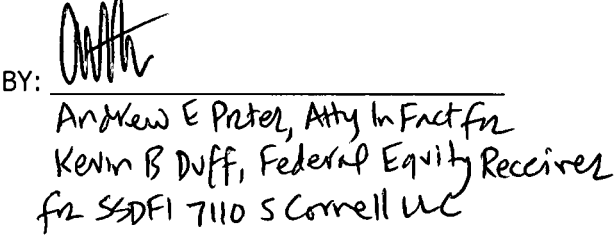 BY:
Andrew E Porter, Atty In Fact for
Kevin B Duff, Federal Equity Receiver
for SSDF1 7110 S Cornell LLC